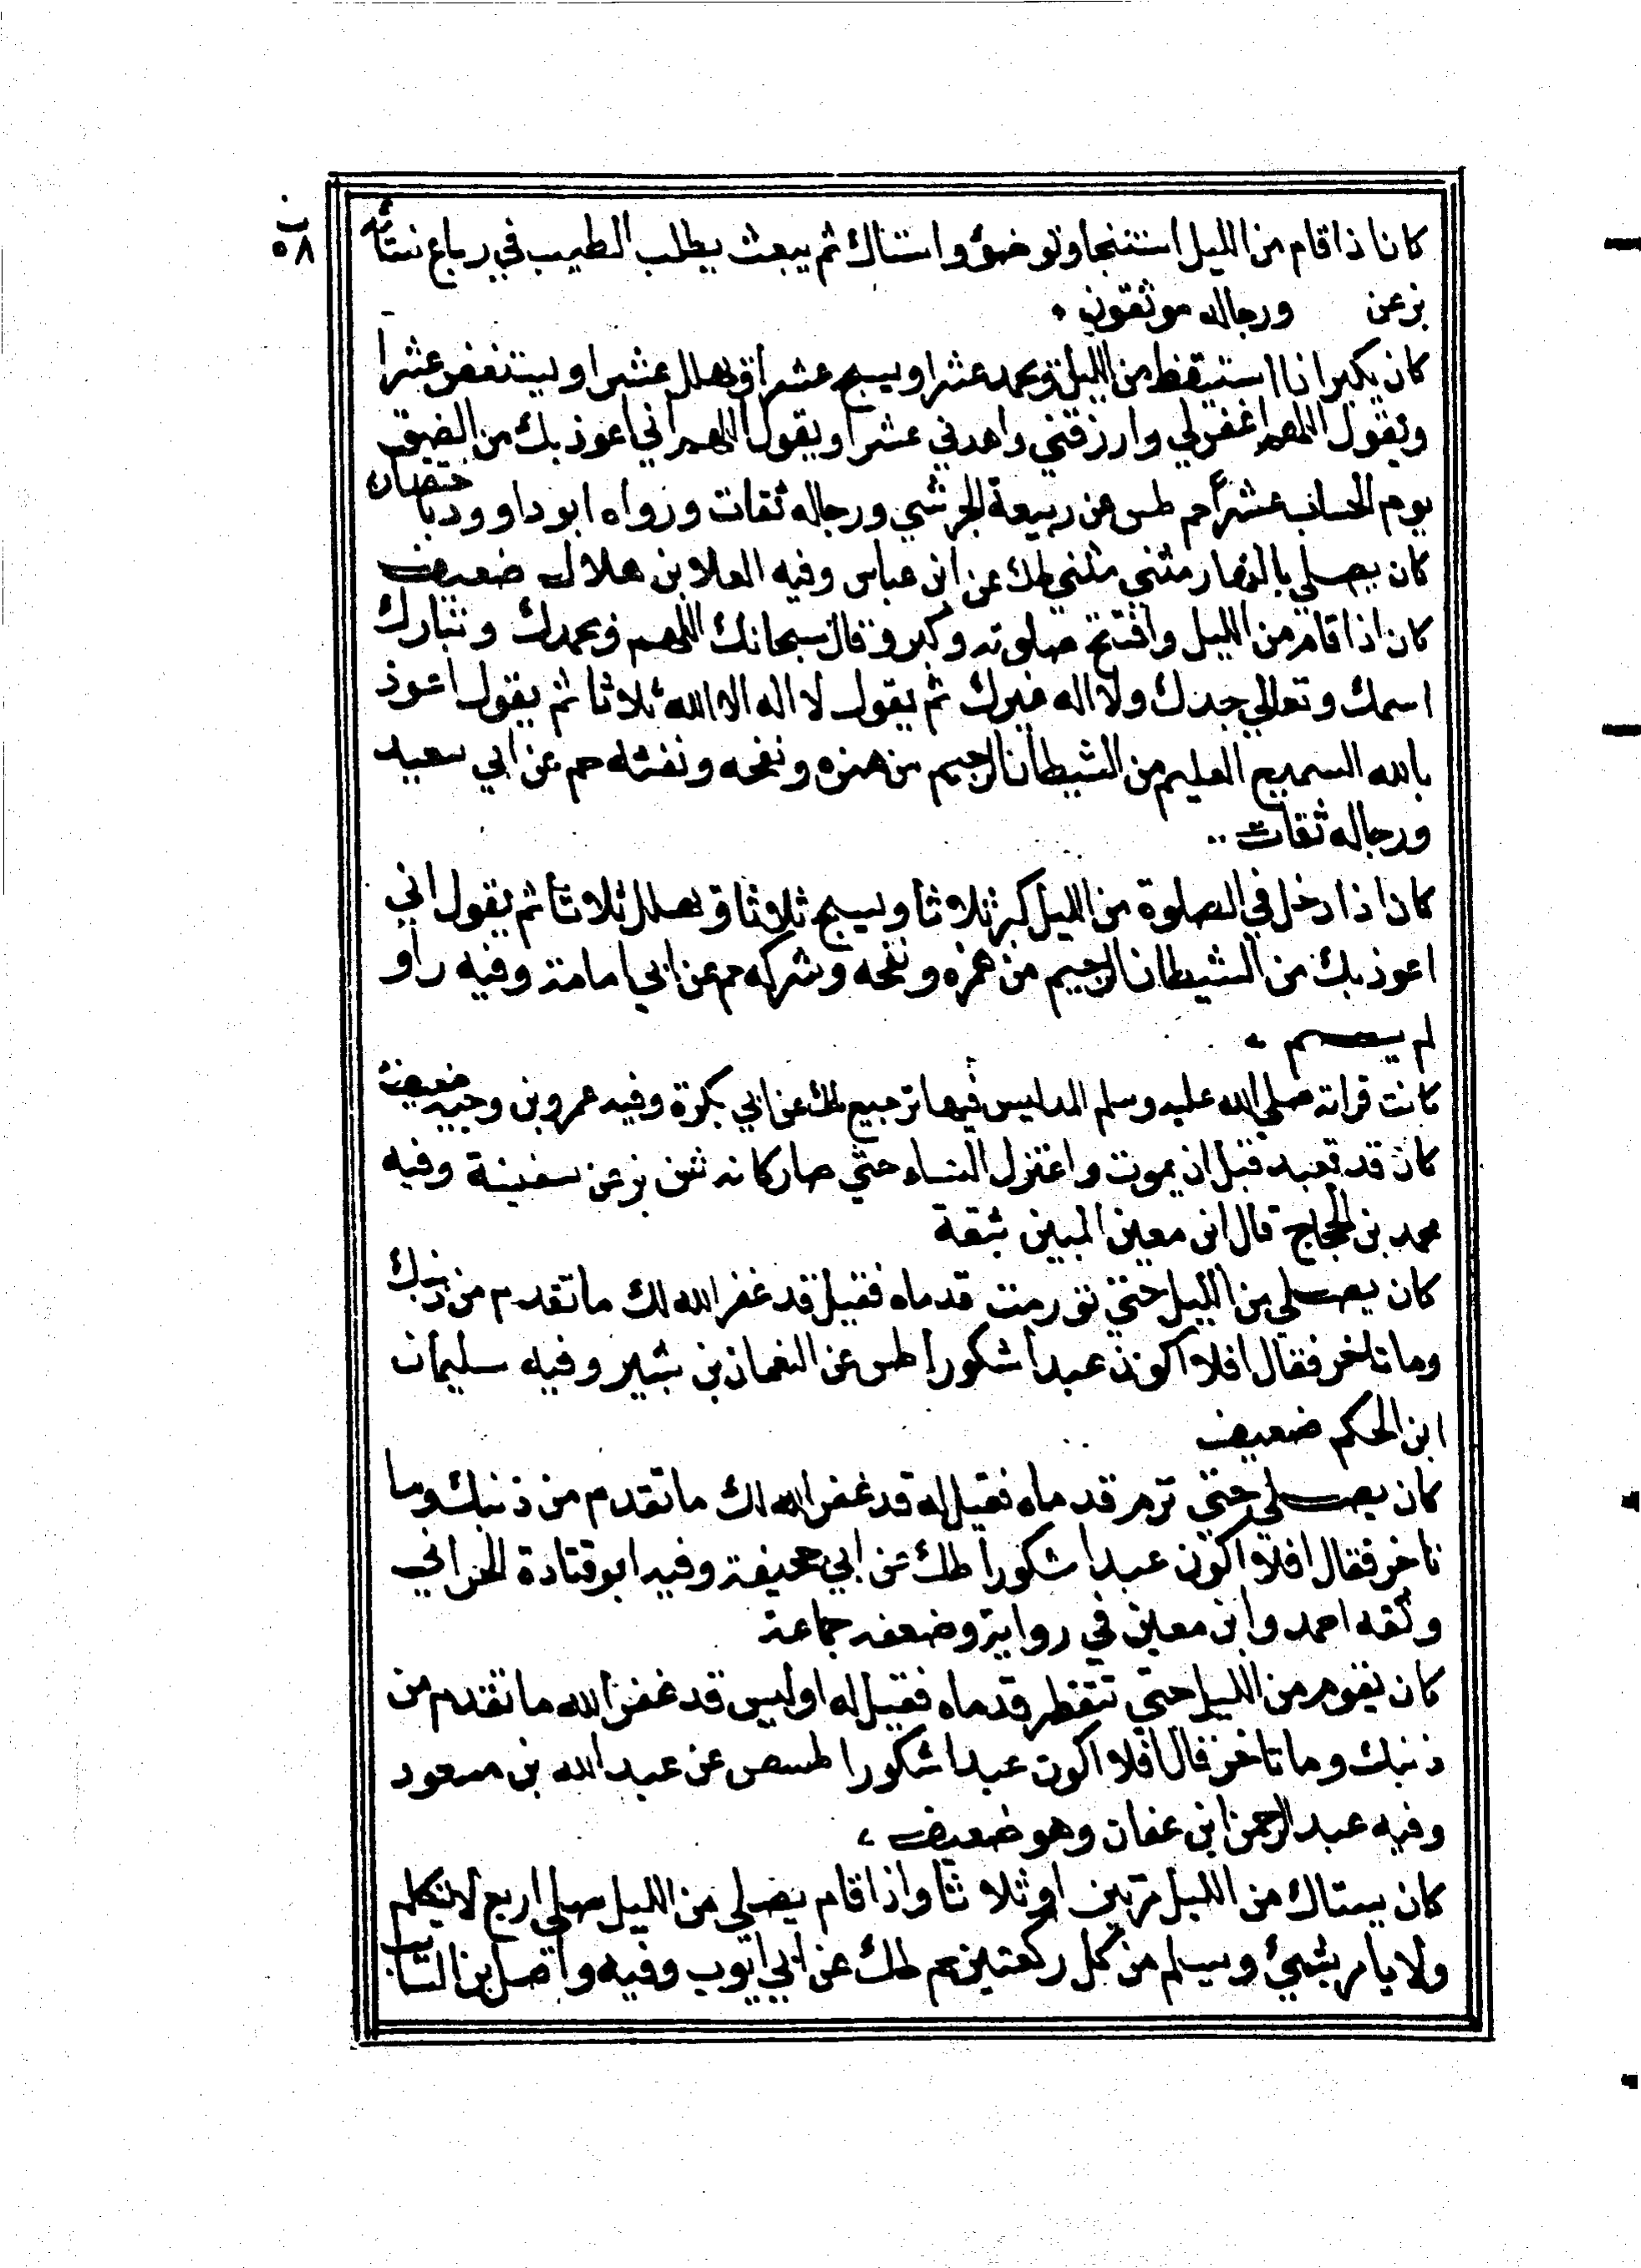 ب ٥٨
كان اذا قام من الليل استنجا وتوضؤ واستاك ثم يبعث يطلب الطيب في رباع نسائه
بز عن ورجاله موثقون
كان يكبر اذا استيقظ من الليل ويحمد عشرا ويسبح عشرا ويهلل عشرا ويستغفر عشرا
ويقول اللهم اغفر لي وارزقني واهدني عشرا ويقول اللهم اني اعوذ بك من الضيق
يوم الحساب عشراً حم طس عن ربيعة الجرشي ورجاله ثقات ورواه ابو داوود باختصار
كان يصلي بالنهار مثني مثني طك عن ابن عباس وفيه العلا بن هلال ضعيف
كان اذا قام من الليل وافتتح صلوته وكبر وقال سبحانك اللهم وبحمدك وتبارك
اسمك وتعالي جدك ولا اله غيرك ثم يقول لا اله الا الله ثلاثا ثم يقول اعوذ
بالله السميع العليم من الشيطان الرجيم من همزه ونفخه ونفثه حم عن ابي سعيد
ورجاله ثقات
كان اذا دخل في الصلوة من الليل كبر ثلاثا ويسبح ثلاثا ويهلل ثلاثا ثم يقول اني
اعوذ بك من الشيطان الرجيم من همزه ونفخه وشركه حم عن ابي امامة وفيه راو
لم يسم
كانت قراته صلي الله عليه وسلم المد ليس فيها ترجيع طك عن ابي بكرة وفيه عمرو بن وجيه ضعيف
كان قد تعبد قبل ان يموت واعتزل النساء حتي صار كانه شن بز عن سفينة وفيه
محمد بن الحجاج قال ابن معين ليس بثقة
كان يصلي من الليل حتي تورمت قدماه فقيل قد غفر الله لك ما تقدم من ذنبك
وما تاخر فقال افلا اكون عبدا شكورا طس عن النعمان بن بشير وفيه سليمان
ابن الحكم ضعيف
كان يصلي حتي ترم قدماه فقيل له قد غفر الله لك ما تقدم من ذنبك وما
تاخر فقال افلا اكون عبدا شكورا طك عن ابي جحيفة وفيه ابو قتادة الحراني
وثقه احمد وابن معين في رواية وضعفه جماعة
كان يقوم من الليل حتي تتفطر قدماه فقيل له اوليس قد غفر الله ما تقدم من
ذنبك وما تاخر قال افلا اكون عبدا شكورا طسص عن عبد الله بن مسعود
وفيه عبد الرحمن ابن عفان وهو ضعيف
كان يستاك من الليل مرتين او ثلاثا واذا قام يصلي من الليل صلي اربع لا يتكلم
ولا يامر بشيئ ويسلم من كل ركعتين حم طك عن ابي ايوب وفيه واصل بن السائب